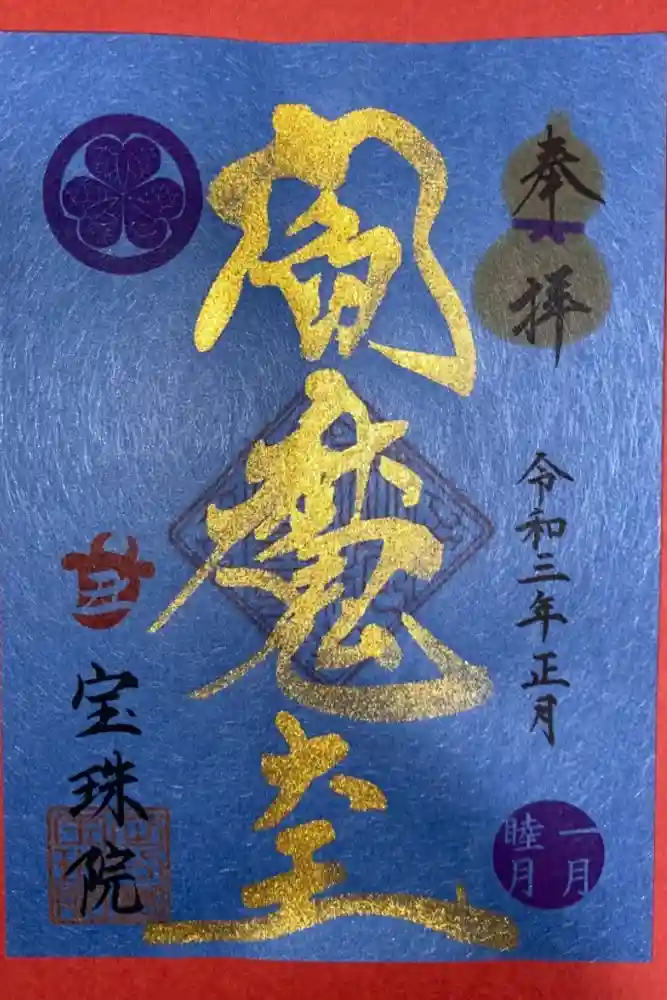 奉拝
令和三年正月
一月
睦月
閻魔大王
宝珠院